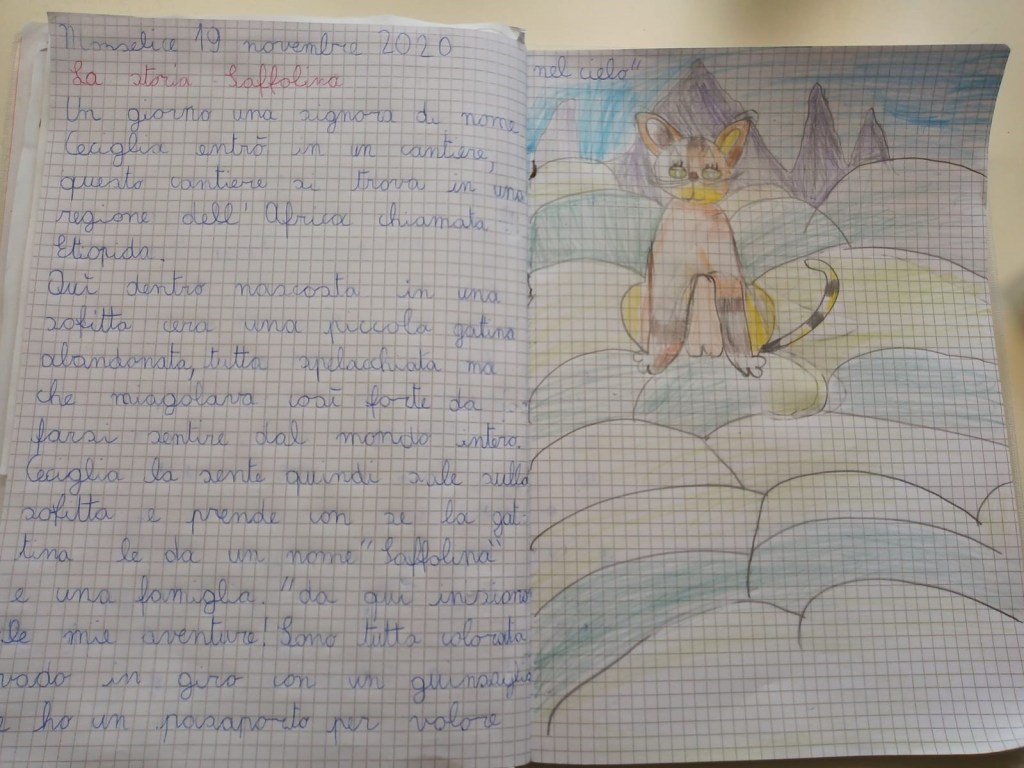 Monselice 19 novembre 2020
La storia Saffolina
Un giorno una signora di nome
Ceciglia entrò in un cantiere,
questo cantiere si trova in una
regione dell'Africa chiamata
Ettopida.
Quì dentro nascosta in una
sofitta cera una piccola gatina
abandonata, tutta spelacchiata ma
che miagolava così forte da
farsi sentire dal mondo intero.
Ceciglia la sente quindi sale sulla
sofitta e prende con se la gat-
tina le da un nome "Saffolina"
e una famiglia. "da quì iniziano
le mie aventure! Sono tutta colorata
vado in giro con un guinzaglio
e ho un passaporto per volore
nel cielo"